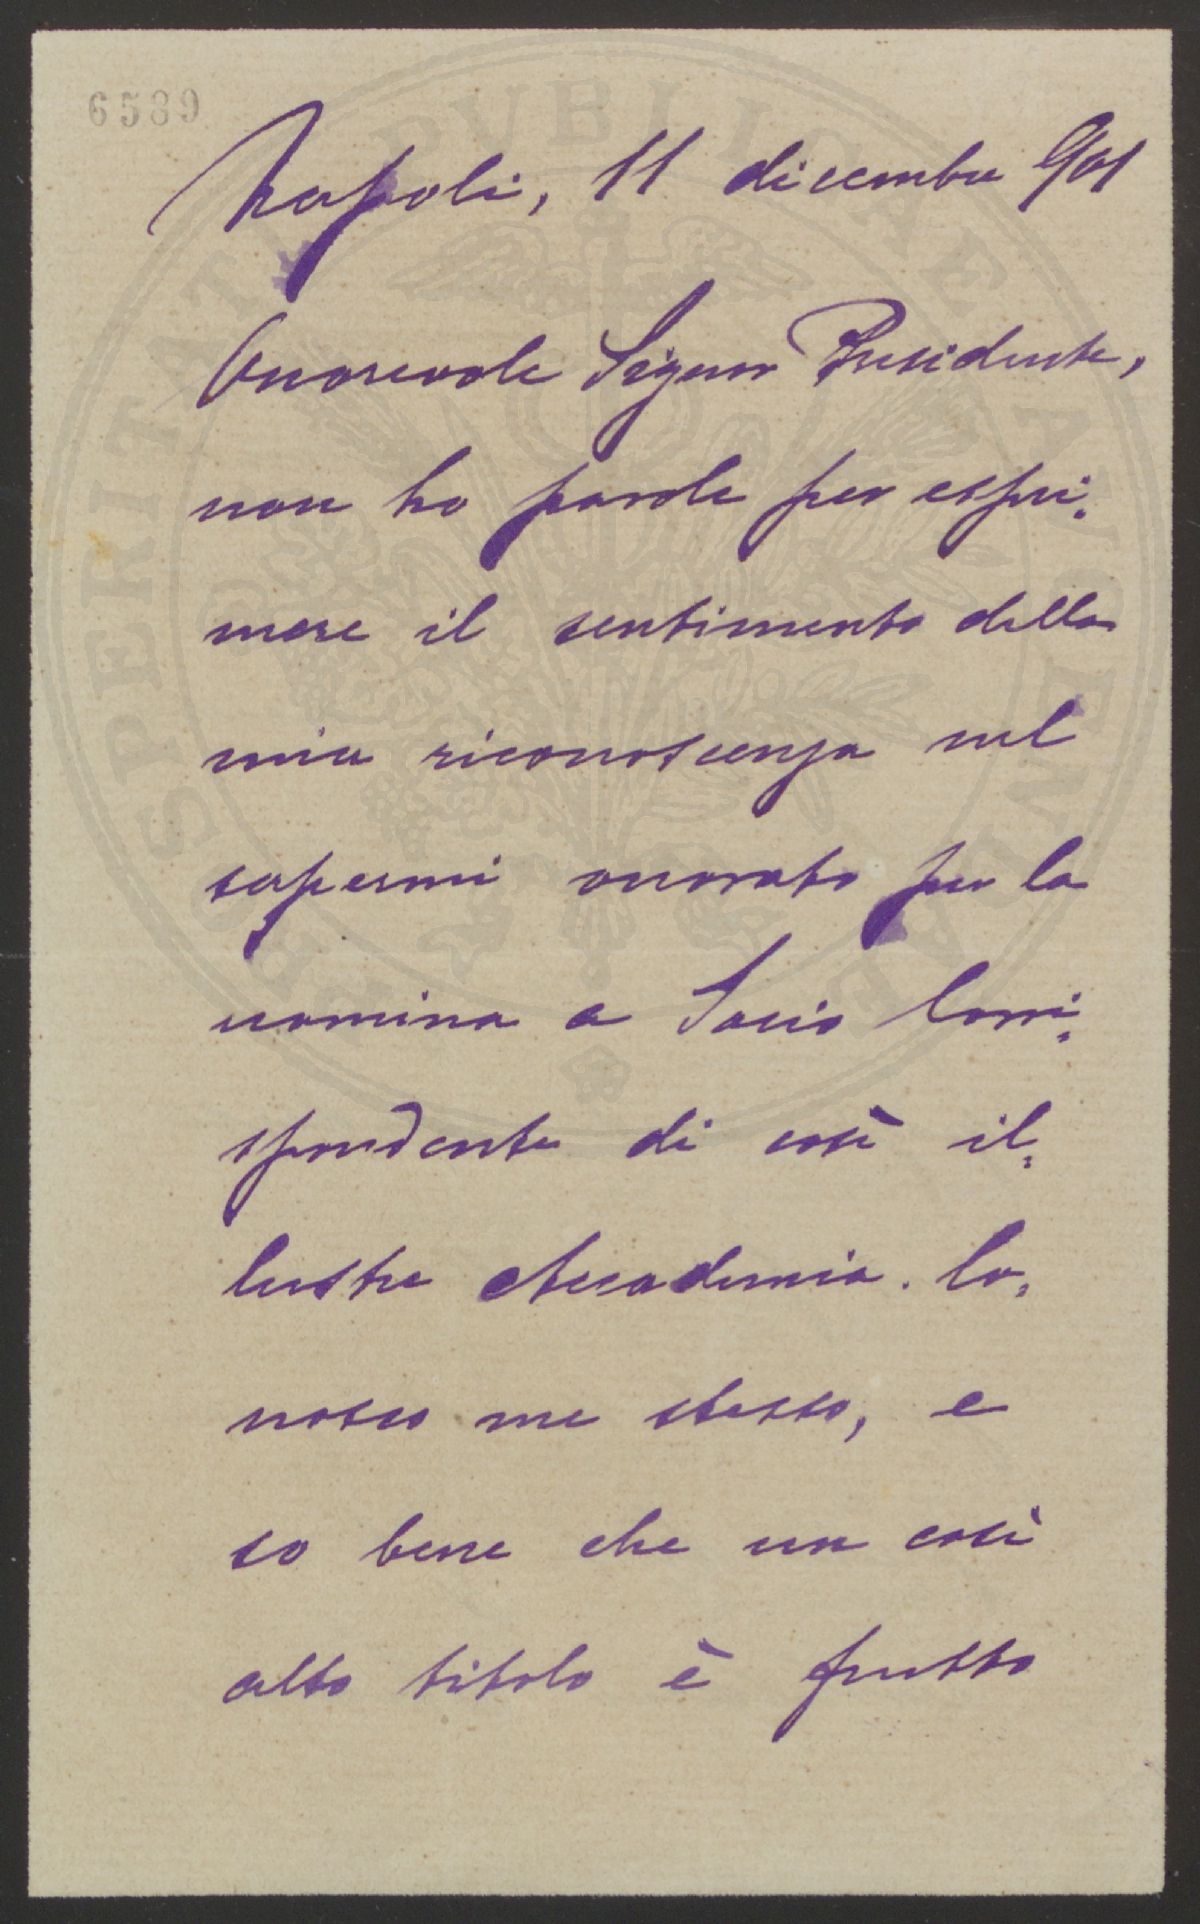 6589
Napoli, 11 dicembre 901
Onorevole Signor Presidente,
non ho parole per espri-
mere il sentimento della
mia riconoscenza nel
sapermi onorato per la
nomina a Socio Corri-
spondente di così il-
lustre Accademia. Co-
nosco me stesso, e
so bene che un così
alto titolo è frutto
PROSPERITATI PUBLICAE AUGENDAE